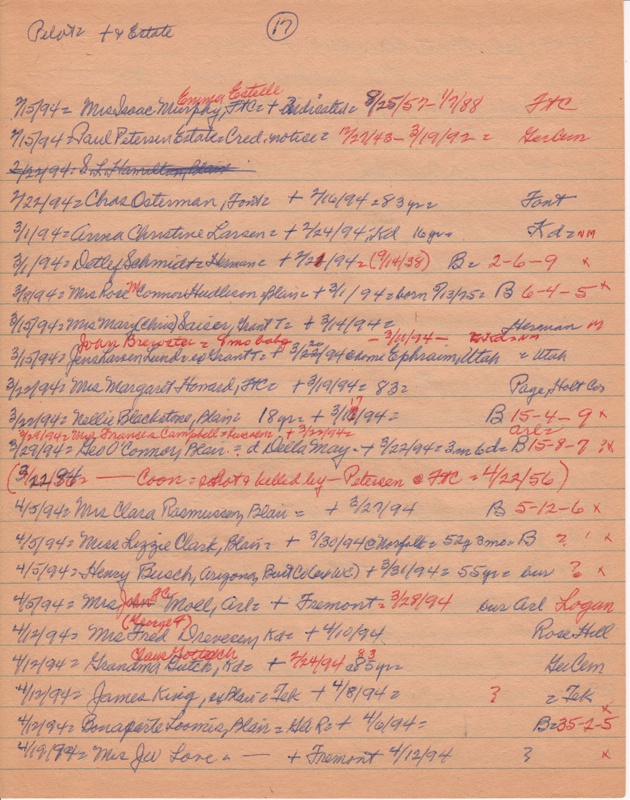 Pilot = + & Estate (17)
Emma Estelle
2/15/94 = Mrs Isaac Murphy, FtC = + Indicated = 8/25/57 - 1/7/88 FtC
2/15/94 = Paul Petersen Estate = Cred. notice = 12/27/43 - 3/19/92 = GerCem
2/22/94 = S.L. Hamilton, Blair
2/22/94 = Chas Osterman, Font = + 2/16/94 = 83 yr = Font
3/1/94 = Anna Christine Larsen = + 2/24/94, Kd 16 yr = Kd = NM
3/1/94 = Detlef Schmidt = Herman = + 2/21/94 = (9/14/38) B = 2-6-9 x
3/8/94 = Mrs Rose McConnori Hudleson, Blair = + 3/1/94 = born 9/13/25 = B 6-4-5 x
3/15/94 = Mrs Mary (Chris) Saiser, Grant T = + 3/14/94 = Herman M
John Brewster = 9 mo baby - 3/20/94 - = Kd = NM
3/15/94 = Jens Larsen Lund = ex Grant T = + 3/2/94 @ home Ephraim, Utah = Utah
3/22/94 = Mrs Margaret Honard, FtC = + 3/19/94 = 83 = Page, Holt Co
3/22/94 = Nellie Blackstone, Blair = 18 yr = + 3/17/94 = B 15-4-9 x
3/29/94 = Mrs Francis Campbell = + 3/22/94 = Arl =
3/29/94 = Geo O'Connor, Blair = d Della May - + 3/22/94 = 3m 6d = B 15-8-7 ?x
(3/22/94 = — Coon = shot & killed by - Petersen @ FtC = 4/22/56)
4/5/94 = Mrs Clara Rasmussen, Blair = + 3/27/94 B 5-12-6 x
4/5/94 = Miss Lizzie Clark, Blair = + 3/30/94 @ Norfolk = 52y 3mo = B ? x
4/5/94 = Henry Busch, Arizona, Burt Co (ex WC) + 3/31/94 = 55 yr = bur ? x
4/5/94 = Mrs John GC Moll, Arl = + Fremont = 3/28/94 bur Arl Logan
(George F)
4/12/94 = Mrs Fred Drevesen, Kd = + 4/10/94 Rose Hill
Claus Gottsch
4/12/94 = Grandma Gutch, Kd = + 2/24/94 = 83 85 yr = GerCem
4/12/94 = James King, ex Blair = Tek + 4/8/94 = ? = Tek
4/12/94 = Bonaparte Loomis, Blair = Hd R = + 4/6/94 = B = 35-2-5 x
4/19/94 = Mrs JW Love = — + Fremont 4/12/94 ? x